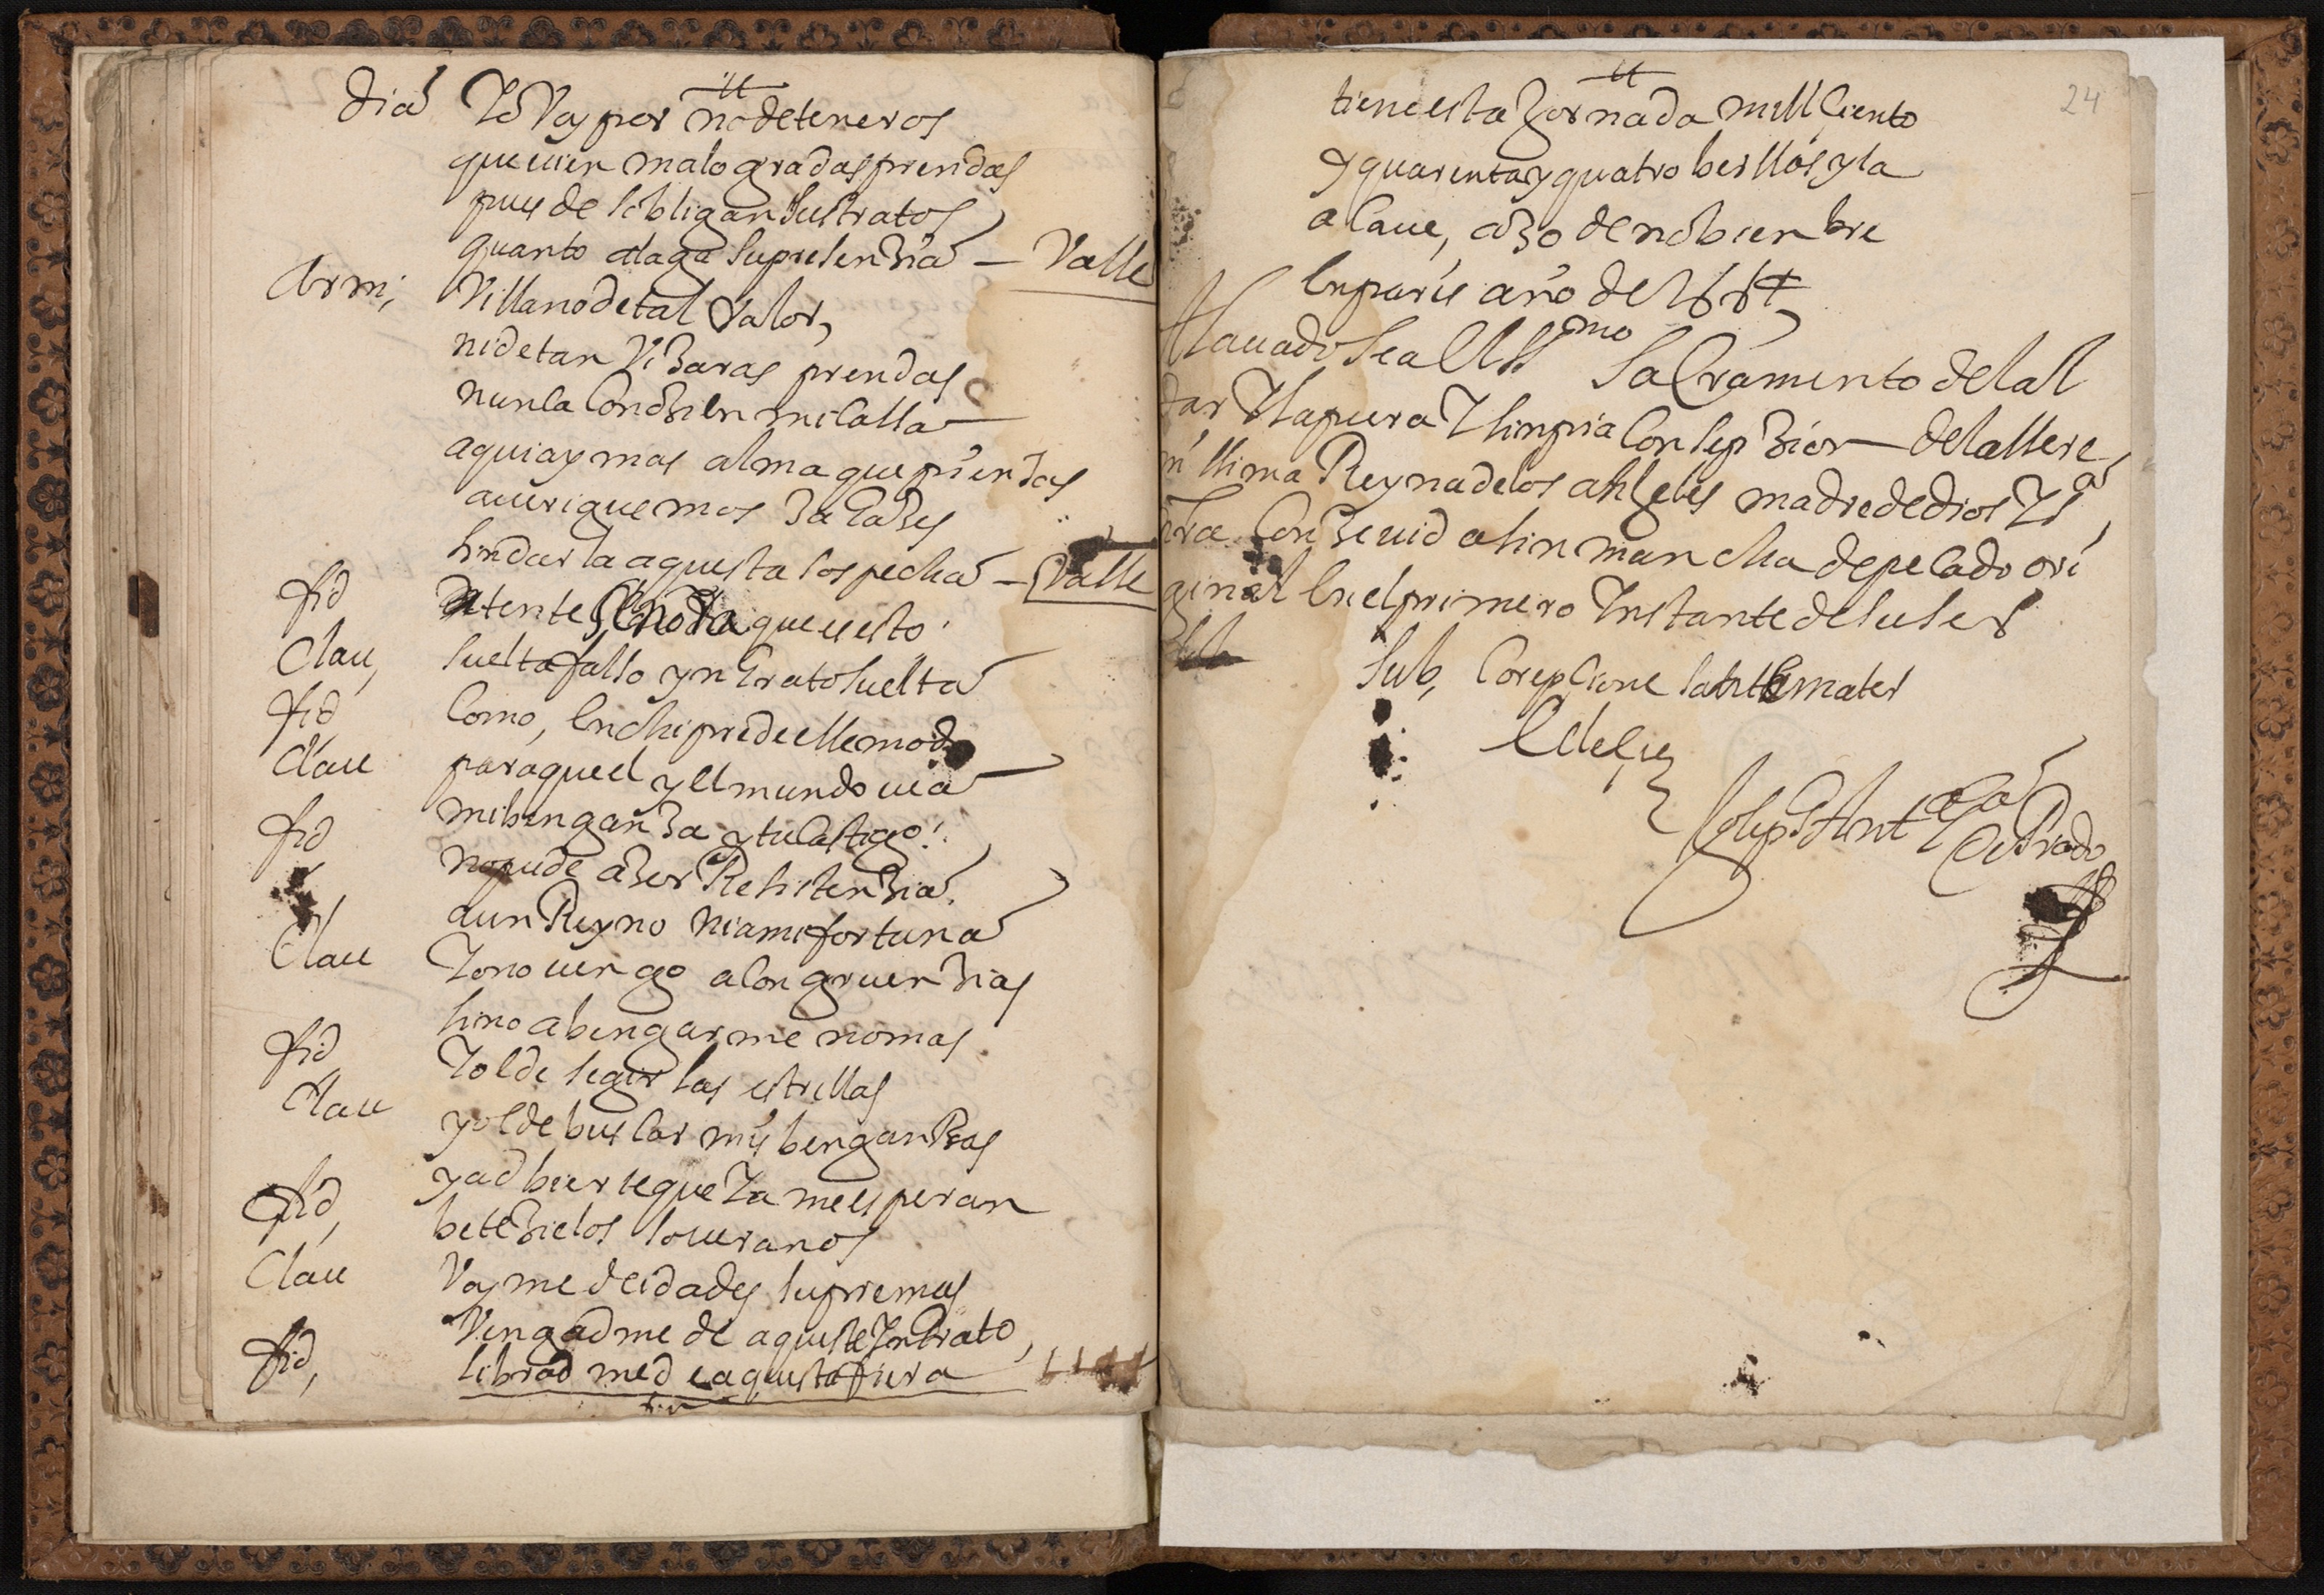 dia Yo Voy por no deteneros
que uien malogradas prendas
pues de sobligan sus tratos
quanto alaga su presenzia — Valle
Armi, Villano de tal Valor,
ni de tan vizaras prendas
nunca conozi en mi casa
aqui ay mas alma que piensas
aueriguemos
sin dar la a questa sospecha — Valle
fid Atente Señora que es esto
Clau, suelta falso yngrato suelta
fid Como, en chipre de esse modo
Clau para que el y el mundo uea
mi benganza y tu castigo
fid no pude azer Resistenzia
a un Reyno ni a mi fortuna
Clau Yo no uengo a congruenzias
sino a bengarme no mas
fid Yo e de segir las estrellas
Clau yo e de buscar mis benganzas
y adbierte que Ya me esperan
fid, bete zielos soueranos
Clau Voyme deidades supremas
Vengadme de aqueste Yngrato,
fid, librad me de aquesta fiera
fin
24
tiene esta Jornada mill ciento
y quarenta y quatro berssos y la
acaue, de nobienbre
en paris año de
Alauado sea el SSmo Sacramento del al
tar Y la pura Y limpia Consepzion de la sere
nissima Reyna de los angeles madre de dios Y Sa
nra Conzeuida sin mancha de pecado ori
ginal en el primero Ynstante de su ser
Sub, Corepcione mater
Joseph Ant Ga de Prado